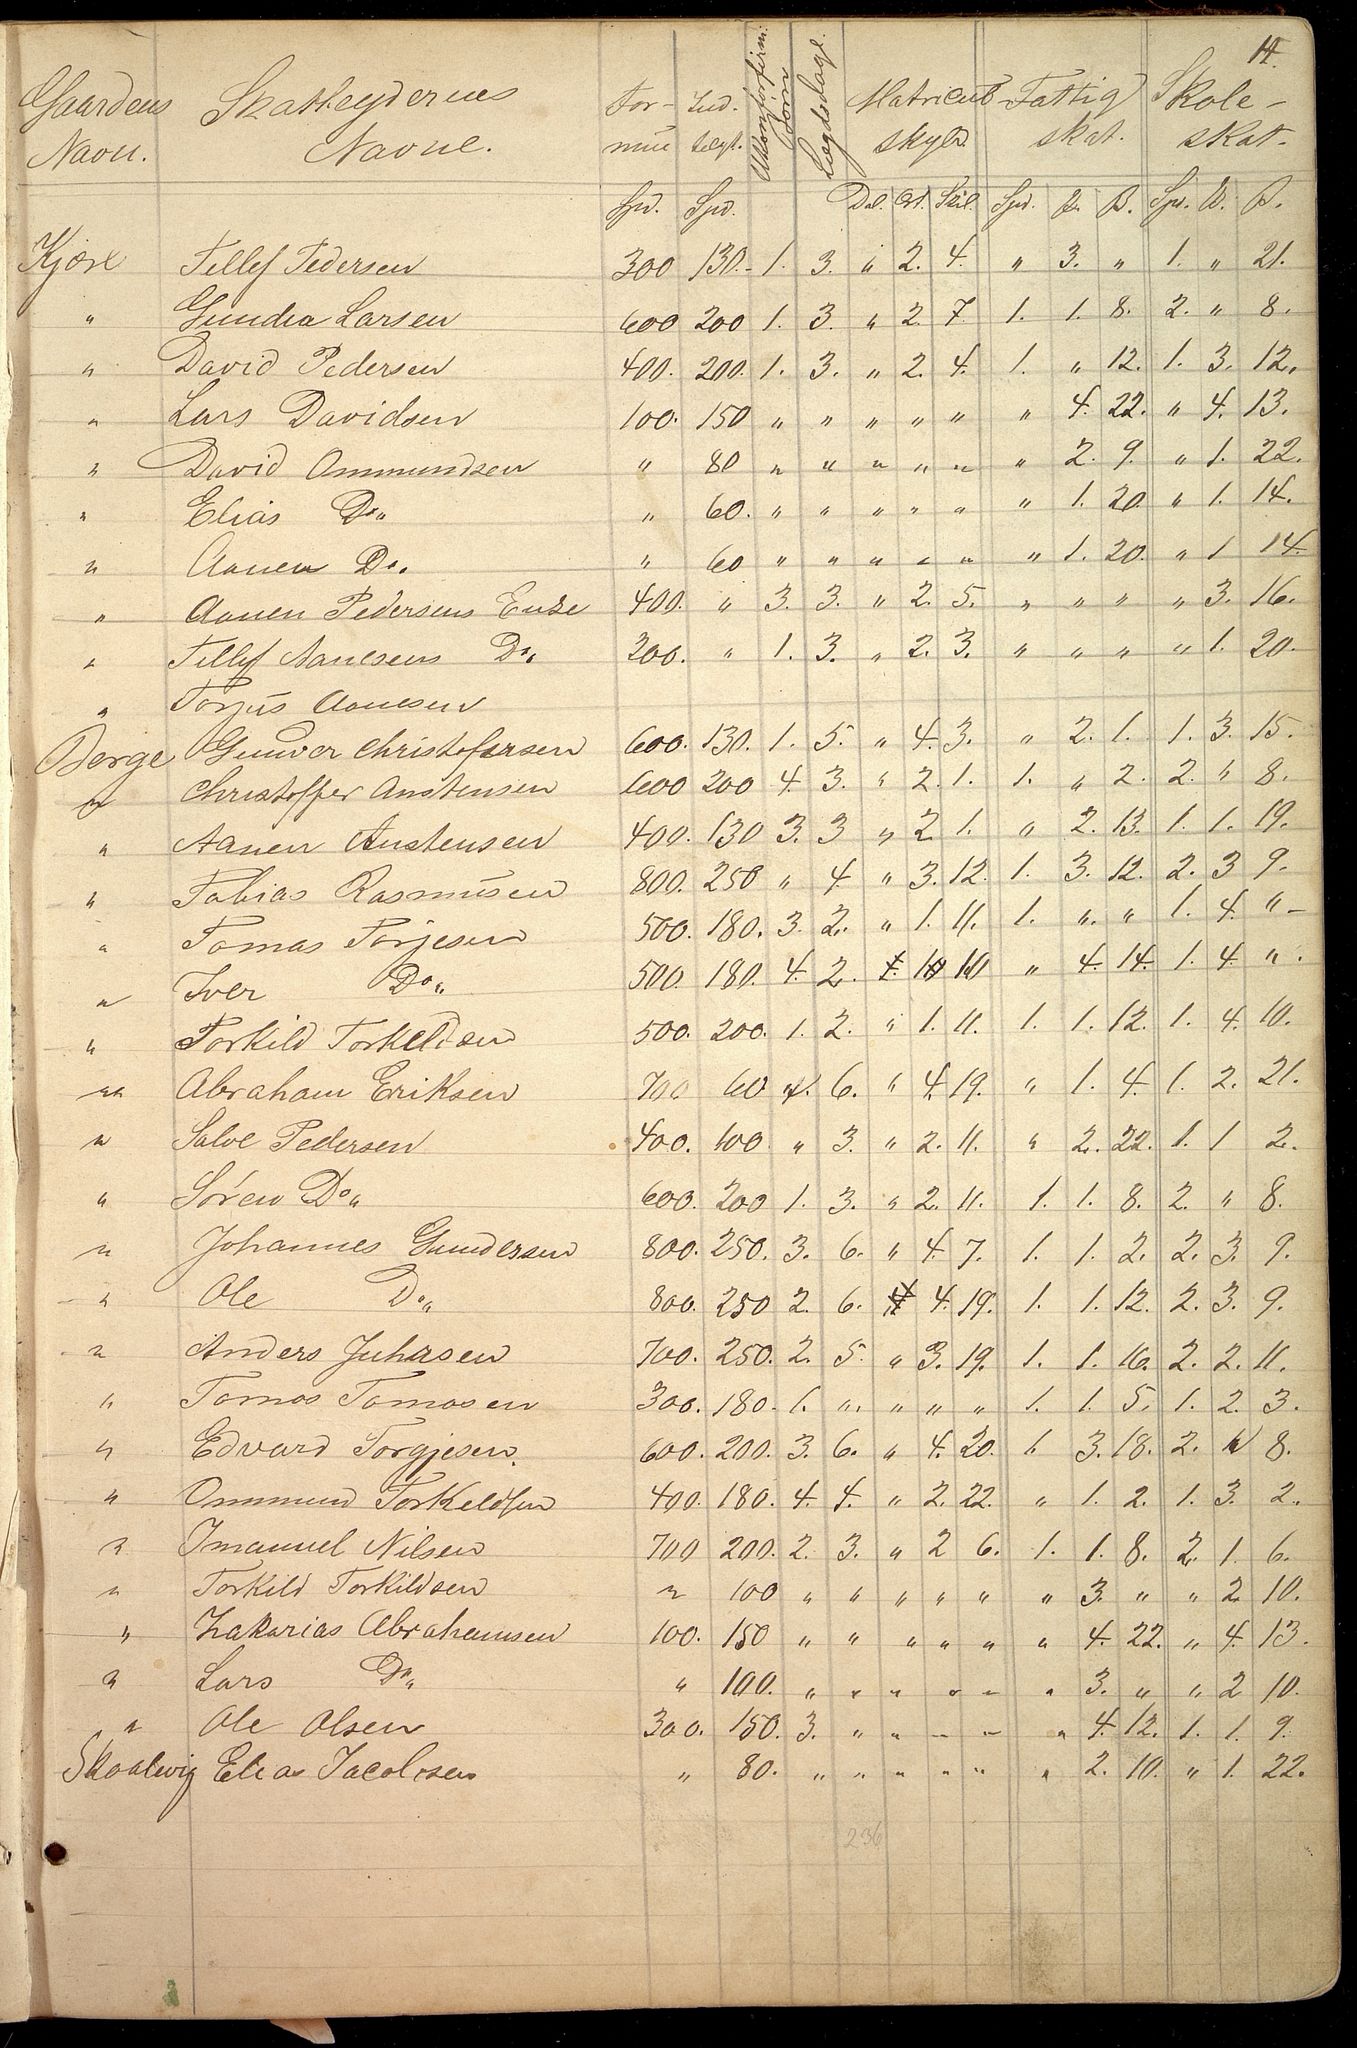 14.
Gaardens Skatteydernes For- Ind- Ukonfirm. Børn Lægdslagt. Matricul Fattig Skole-
Navn. Navne. mue tægt. skyld skat. skat.
Spd. Spd. Dal. Ort. Skil. Spd. O. S. Spd. O. S.
Kjøre Tellef Pedersen 300 130. 1. 3. " 2. 4. " 3. " 1. " 21.
" Gundra Larsen 600 200 1. 3. " 2. 7. 1. 1. 8. 2. " 8.
" David Pedersen 400. 200. 1. 3. " 2. 4. 1. " 12. 1. 3. 12.
" Lars Davidsen 100. 150 " " " " " " 4. 22. " 4. 13.
" David Ommundsen " 80 " " " " " " 2. 9. " 1. 22.
" Elias Do " 60. " " " " " " 1. 20 " 1. 14.
" Aanen Do. " 60 " " " " " " 1. 20. " 1 14.
" Aanen Pedersens Enke 400. " 3. 3. " 2. 5. " " " " 3. 16.
" Tellef Aanesens Do 200. " 1. 3. " 2. 3. " " " " 1. 20.
" Torjus Aanesen
Berge Gunver Christofersen 600. 130. 1. 5. " 4. 3. " 2. 1. 1. 3. 15.
" Christoffer Anstensen 600 200 4. 3. " 2. 1. 1. " 2. 2. " 8.
" Aanen Anstensen 400. 130 3. 3 " 2 1. " 2. 13. 1. 1. 19.
" Tobias Rasmusen 800. 250 " 4 " 3. 12. 1. 3. 12. 2. 3 9.
" Tomas Torjesen 500. 180. 3. 2. " 1. 11. 1. " " 1. 4. "
" Iver Do 500. 180. 4. 2. 10 " 4. 14. 1. 4. "
" Torkild Torkeldsen 500. 200. 1. 2. " 1. 11. 1. 1. 12. 1. 4. 10.
" Abraham Eriksen 700 60 6. " 4. 19. " 1. 4. 1. 2. 21.
" Salve Pedersen 400. 100. " 3. " 2. 11. " 2. 22. 1. 1 2.
" Sören Do 600. 200 1. 3. " 2. 11. 1. 1. 8. 2. " 8.
" Johannes Gundersen 800. 250. 3. 6. " 4. 7. 1. 1. 2. 2. 3. 9.
" Ole Do 800. 250 2. 6. 4. 19. 1. 1. 12. 2. 3. 9.
" Anders Juhasen 700. 250. 2. 5. " 3. 19. 1. 1. 16. 2. 2. 11.
" Tomas Tomasen 300. 180. 1. " " " " 1. 1. 5. 1. 2. 3.
" Edvard Torgjesen. 600. 200. 3. 6. " 4. 20. 1. 3. 18. 2. " 8.
" Ommund Torkeldsen 400. 180. 4. 4. " 2. 22. " 1. 2. 1. 3. 2.
" Imanuel Nilsen 700 200. 2. 3. " 2 6. 1. 1. 8. 2. 1. 6.
" Torkild Torkildsen " 100 " " " " " " 3. " " 2 10.
" Zakarias Abrahamsen 100. 150 " " " " " " 4. 22. " 4. 13.
" Lars Do " 100. " " " " " " 3. " " 2 10.
" Ole Olsen 300. 150. 3. " " " " " 4. 12. 1. 1. 9.
Skoalevig Elias Jacobsen " 80. " " " " " " 2. 10. " 1. 22.
236